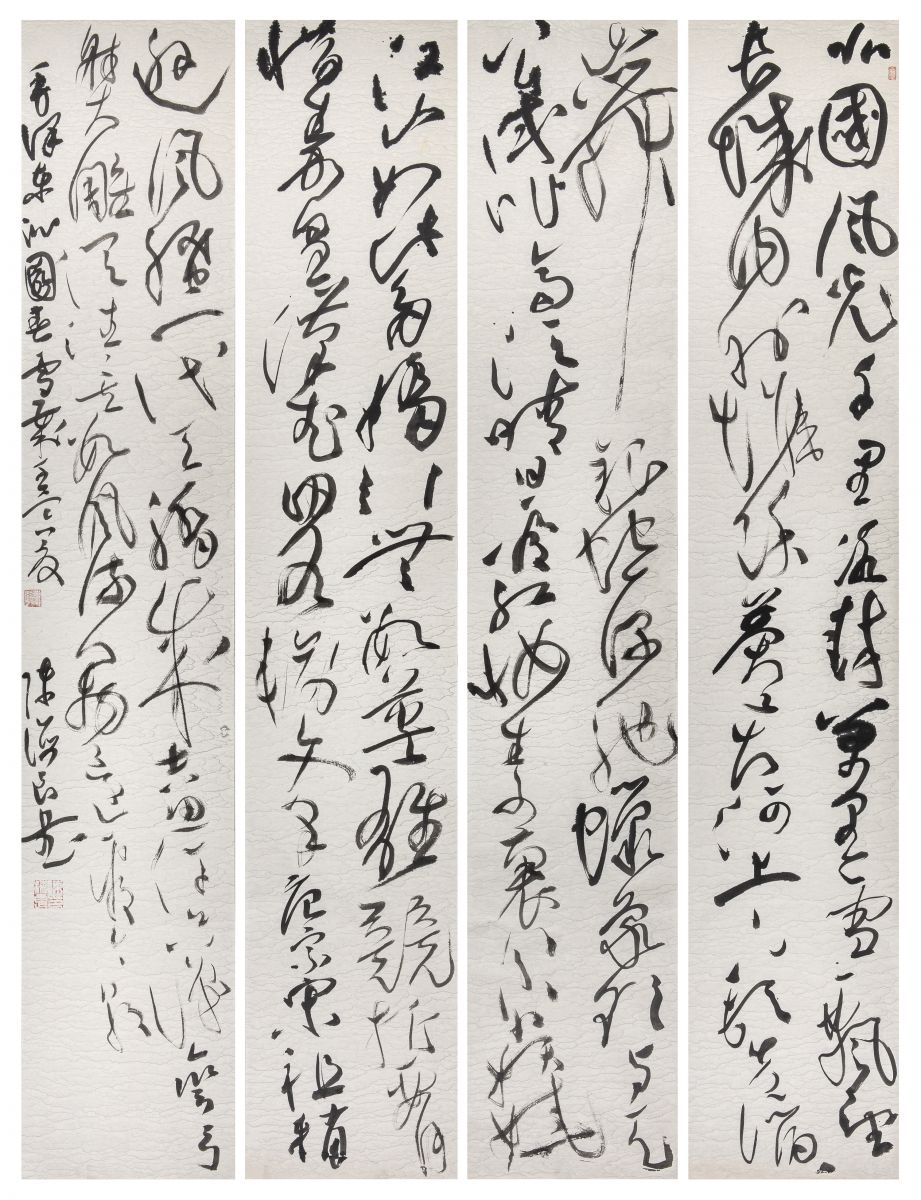 北國風光千里冰封萬里雪飄望
長城內外惟餘莽莽大河上下頓失滔滔
山舞銀蛇原馳蠟象欲与天
公試比高須晴日看紅妝素裹分外妖嬈
江山如此多嬌引無數英雄競折腰
惜秦皇漢武略輸文采唐宗宋祖稍
遜風騷一代天驕成吉思汗只識彎弓
射大雕俱往矣數風流人物還看今朝
毛澤東沁園春雪
陳海良書